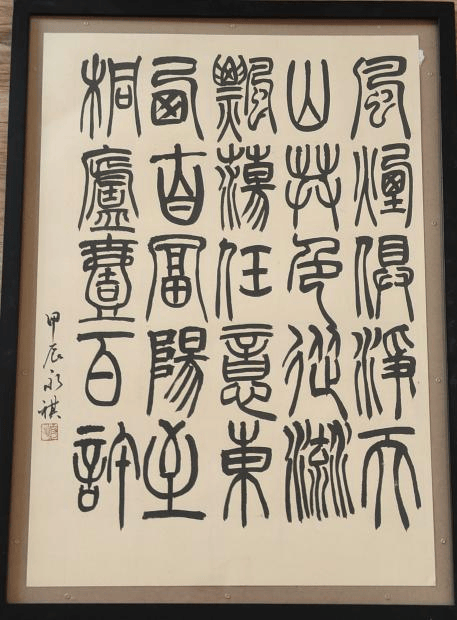 風煙俱淨天
山共色從流
飄蕩任意東
西自富陽至
桐廬壹百許
甲辰永祺